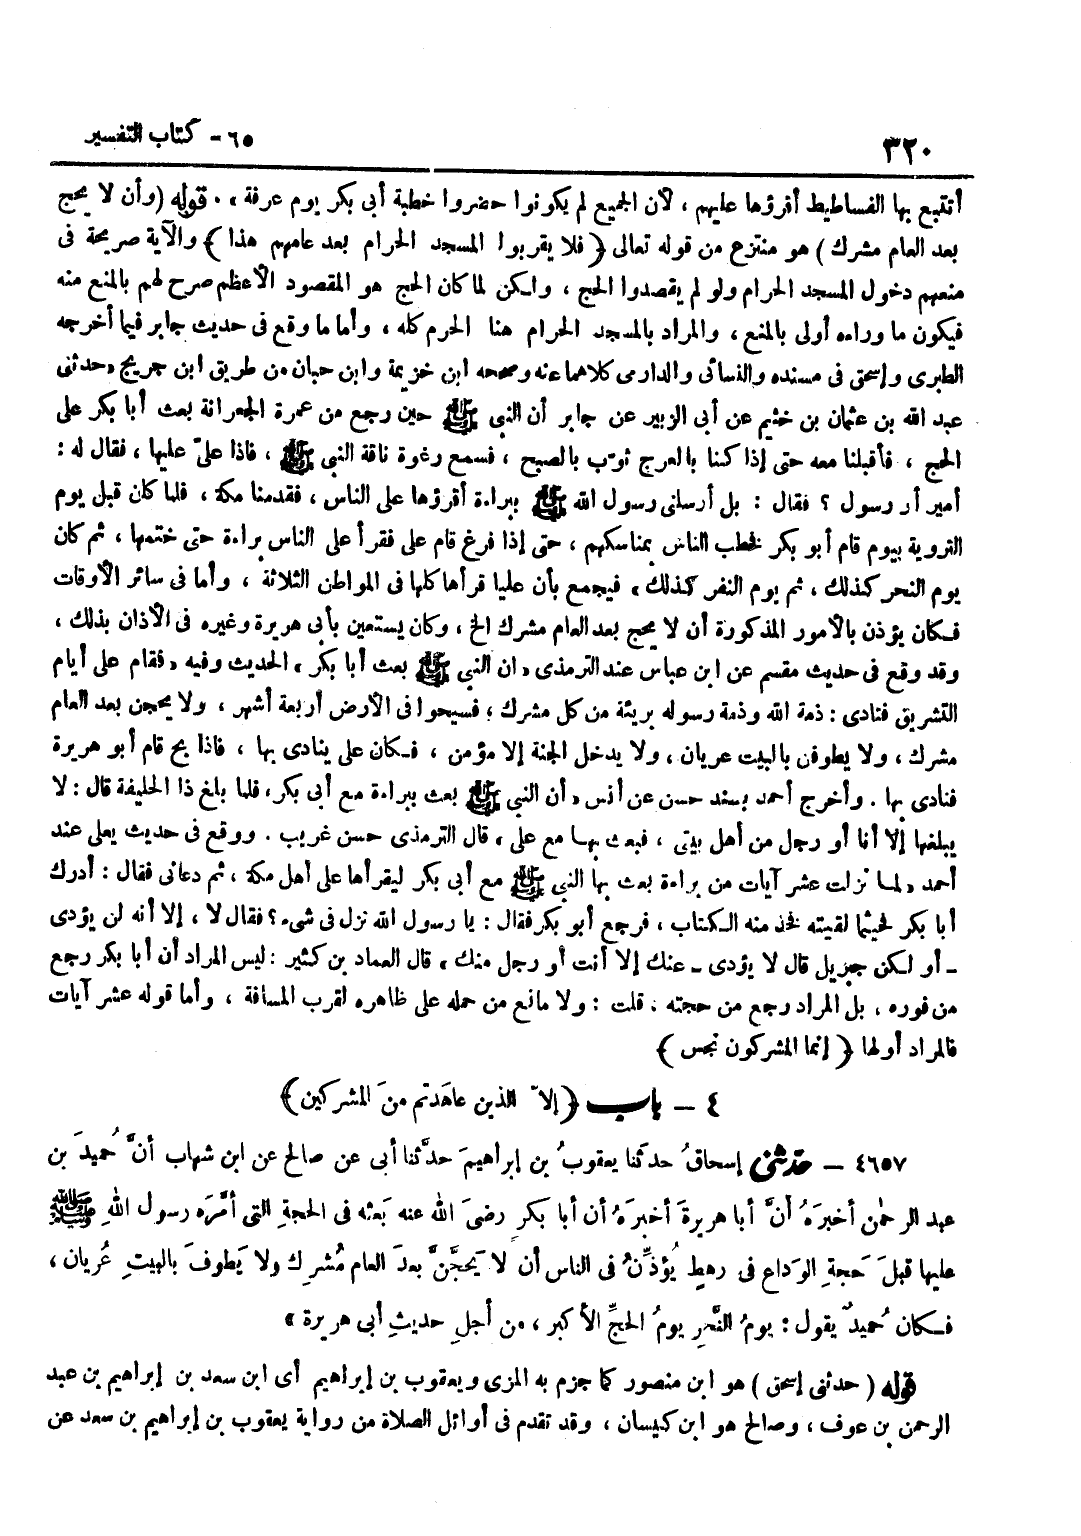 ٣٢٠
٦٥ - كتاب التفسير
أتتبع بها الفساطيط أقرؤها عليهم ، لأن الجميع لم يكونوا حضروا خطبة أبى بكر يوم عرفة » . قوله ( وأن لا يحج
بعد العام مشرك ) هو منتزع من قوله تعالى ﴿ فلا يقربوا المسجد الحرام بعد عامهم هذا ﴾ والآية صريحة فى
منعهم دخول المسجد الحرام ولو لم يقصدوا الحج ، ولكن لما كان الحج هو المقصود الأعظم صرح لهم بالمنع منه
فيكون ما وراءه أولى بالمنع ، والمراد بالمسجد الحرام هنا الحرم كله ، وأما ما وقع فى حديث جابر فيما أخرجه
الطبرى وإسحق فى مسنده والنسائى والدارمى كلاهما عنه وصححه ابن خزيمة وابن حبان من طريق ابن جريج « حدثنى
عبد الله بن عثمان بن خثيم عن أبى الزبير عن جابر أن النبي ﷺ حين رجع من عمرة الجعرانة بعث أبا بكر على
الحج ، فأقبلنا معه حتى إذا كنا بالعرج ثوّب بالصبح ، فسمع رغوة ناقة النبي ﷺ ، فاذا علىّ عليها ، فقال له :
أمير أر رسول ؟ فقال : بل أرسلنى رسول الله ﷺ ببراءة أقرؤها على الناس ، فقدمنا مكة ، فلما كان قبل يوم
التروية بيوم قام أبو بكر فخطب الناس بمناسكهم ، حتى إذا فرغ قام على فقرأ على الناس براءة حتى ختمها ، ثم كان
يوم النحر كذلك ، ثم يوم النفر كذلك » فيجمع بأن عليا قرأها كلها فى المواطن الثلاثة ، وأما فى سائر الأوقات
فكان يؤذن بالأمور المذكورة أن لا يحج بعد العام مشرك الخ ، وكان يستعين بأبى هريرة وغيره فى الأذان بذلك ،
وقد وقع فى حديث مقسم عن ابن عباس عند الترمذى « ان النبي ﷺ بعث أبا بكر » الحديث وفيه « فقام على أيام
التشريق فنادى : ذمة الله وذمة رسوله بريئة من كل مشرك ؛ فسيحوا فى الأرض أربعة أشهر ، ولا يحجن بعد العام
مشرك ، ولا يطوفن بالبيت عريان ، ولا يدخل الجنة إلا مؤمن ، فكان على ينادى بها ، فاذا بح قام أبو هريرة
فنادى بها . وأخرج أحمد بسند حسن عن أنس « أن النبي ﷺ بعث ببراءة مع أبى بكر ، فلما بلغ ذا الحليفة قال : لا
يبلغها إلا أنا أو رجل من أهل بيتى ، فبعث بها مع على ، قال الترمذى حسن غريب . ووقع فى حديث يعلى عند
أحمد « لما نزلت عشر آيات من براءة بعث بها النبي ﷺ مع أبى بكر ليقرأها على أهل مكة ، ثم دعانى فقال : أدرك
أبا بكر فحيثما لقيته فخذ منه الكتاب ، فرجع أبو بكر فقال : يا رسول الله نزل فى شىء ؟ فقال لا ، إلا أنه لن يؤدى
ـ أو لكن جبريل قال لا يؤدى ـ عنك إلا أنت أو رجل منك » قال العماد بن كثير : ليس المراد أن أبا بكر رجع
من فوره ، بل المراد رجع من حجته . قلت : ولا مانع من حمله على ظاهره لقرب المسافة ، وأما قوله عشر آيات
فالمراد أولها ﴿ إنما المشركون نجس ﴾
٤ - باب ﴿ إلاّ الذين عاهَدتم منَ المشركين ﴾
٤٦٥٧ - حدثنى إسحاقُ حدثنا يعقوبُ بن إبراهيمَ حدَّثنا أبى عن صالح عن ابن شهاب أنَّ حُميدَ بن
عبد الرحمٰن أخبرَهُ أنَّ أبا هريرةَ أخبرَهُ أن أبا بكرٍ رضىَ الله عنه بَعثه فى الحجةِ التى أمَّرَه رسول اللهِ ﷺ
عليها قبلَ حَجةِ الوَداع فى رهطٍ يُؤذِّنُ فى الناس أن لا يَحجَّنَّ بعدَ العام مُشرِك ولا يَطوفَ بالبيتِ عُريان ،
فكان حُميدٌ يقول : يومُ النَّحرِ يومُ الحجِّ الأكبر ، من أجلِ حديثِ أبى هريرة »
قوله ( حدثنى إسحق ) هو ابن منصور كما جزم به المزى ويعقوب بن إبراهيم أى ابن سعد بن إبراهيم بن عبد
الرحمن بن عوف ، وصالح هو ابن كيسان ، وقد تقدم فى أوائل الصلاة من رواية يعقوب بن إبراهيم بن سعد عن